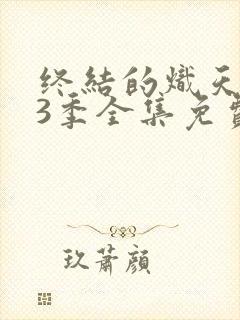 终結的熾天
3季全集免費
玖蕭顔